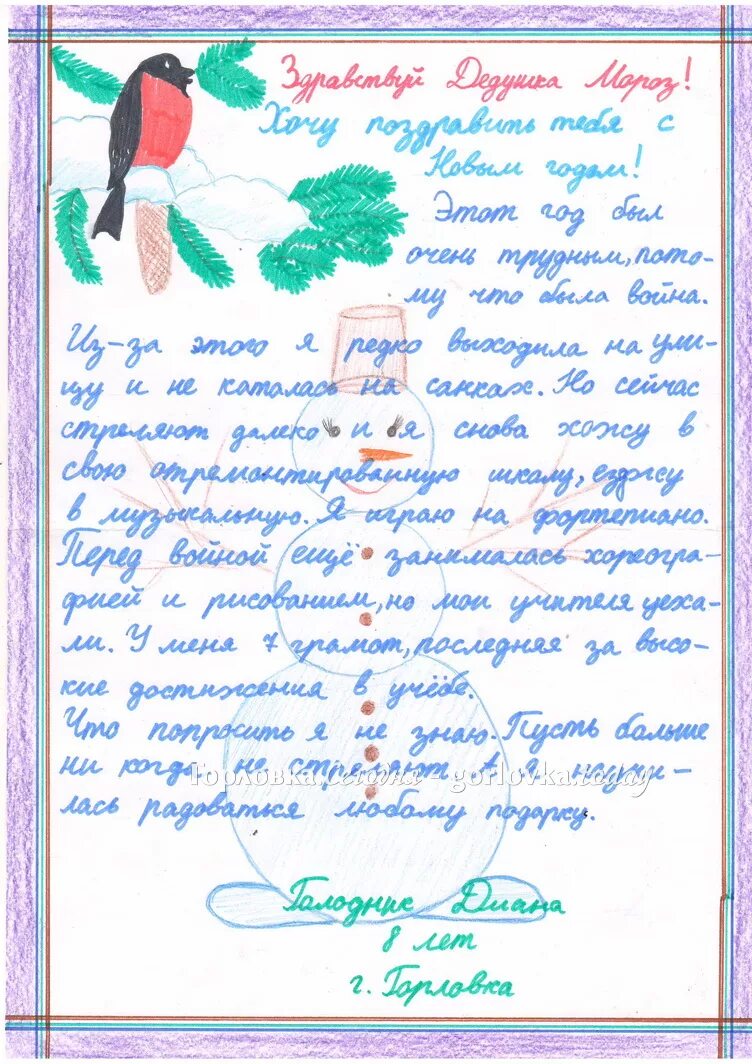 Здравствуй Дедушка Мороз!
Хочу поздравить тебя с
Новым годом!
Этот год был
очень трудным, пото-
му что была война.
Из-за этого я редко выходила на ули-
цу и не каталась на санках. Но сейчас
стреляют далеко и я снова хожу в
свою отремонтированную школу, езжу
в музыкальную. Я играю на фортепиано.
Перед войной ещё занималась хореогра-
фией и рисованием, но мои учителя уеха-
ли. У меня 7 грамот, последняя за высо-
кие достижения в учёбе.
Что попросить я не знаю. Пусть больше
ни когда не стреляют. А я научи-
Горловка сегодня - gorlovka.today
лась радоваться любому подарку.
Голодник Диана
8 лет
г. Горловка